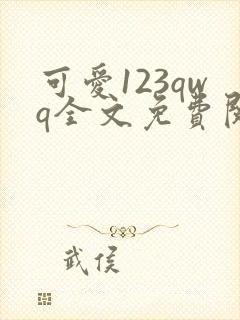 可愛123qw
q全文免費
武侯